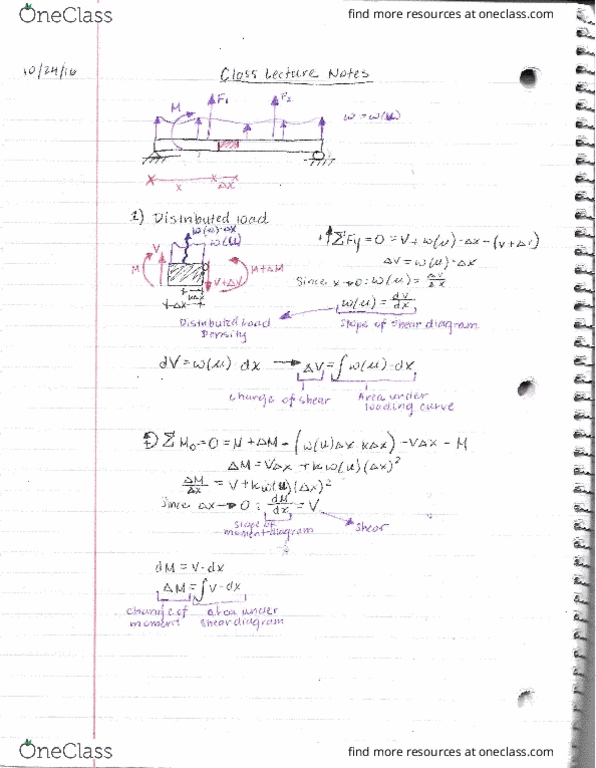 OneClass
find more resources at oneclass.com
10/24/16
Class Lecture Notes
M F₁ F₂ w = w(x)
x Δx
1) Distributed load
w(x)·Δx
w(x)
V
M M+ΔM
V+ΔV
Δx
+↑ΣFy = 0 = V + w(x)·Δx - (V+ΔV)
ΔV = w(x)·Δx
Since x→0: w(x) = ΔV/Δx
w(x) = dV/dx
Distributed Load Density
Slope of shear diagram
dV = w(x)·dx → ΔV = ∫w(x)·dx
change of shear
Area under
loading curve
ΣM₀ = 0 = M + ΔM - (w(x)Δx·kΔx) - VΔx - M
ΔM = VΔx + kw(x)(Δx)²
ΔM/Δx = V + kw(x)(Δx)²
Since Δx→0: dM/dx = V
slope of
moment diagram
shear
dM = V·dx
ΔM = ∫V·dx
change of
moment
area under
shear diagram
OneClass
find more resources at oneclass.com